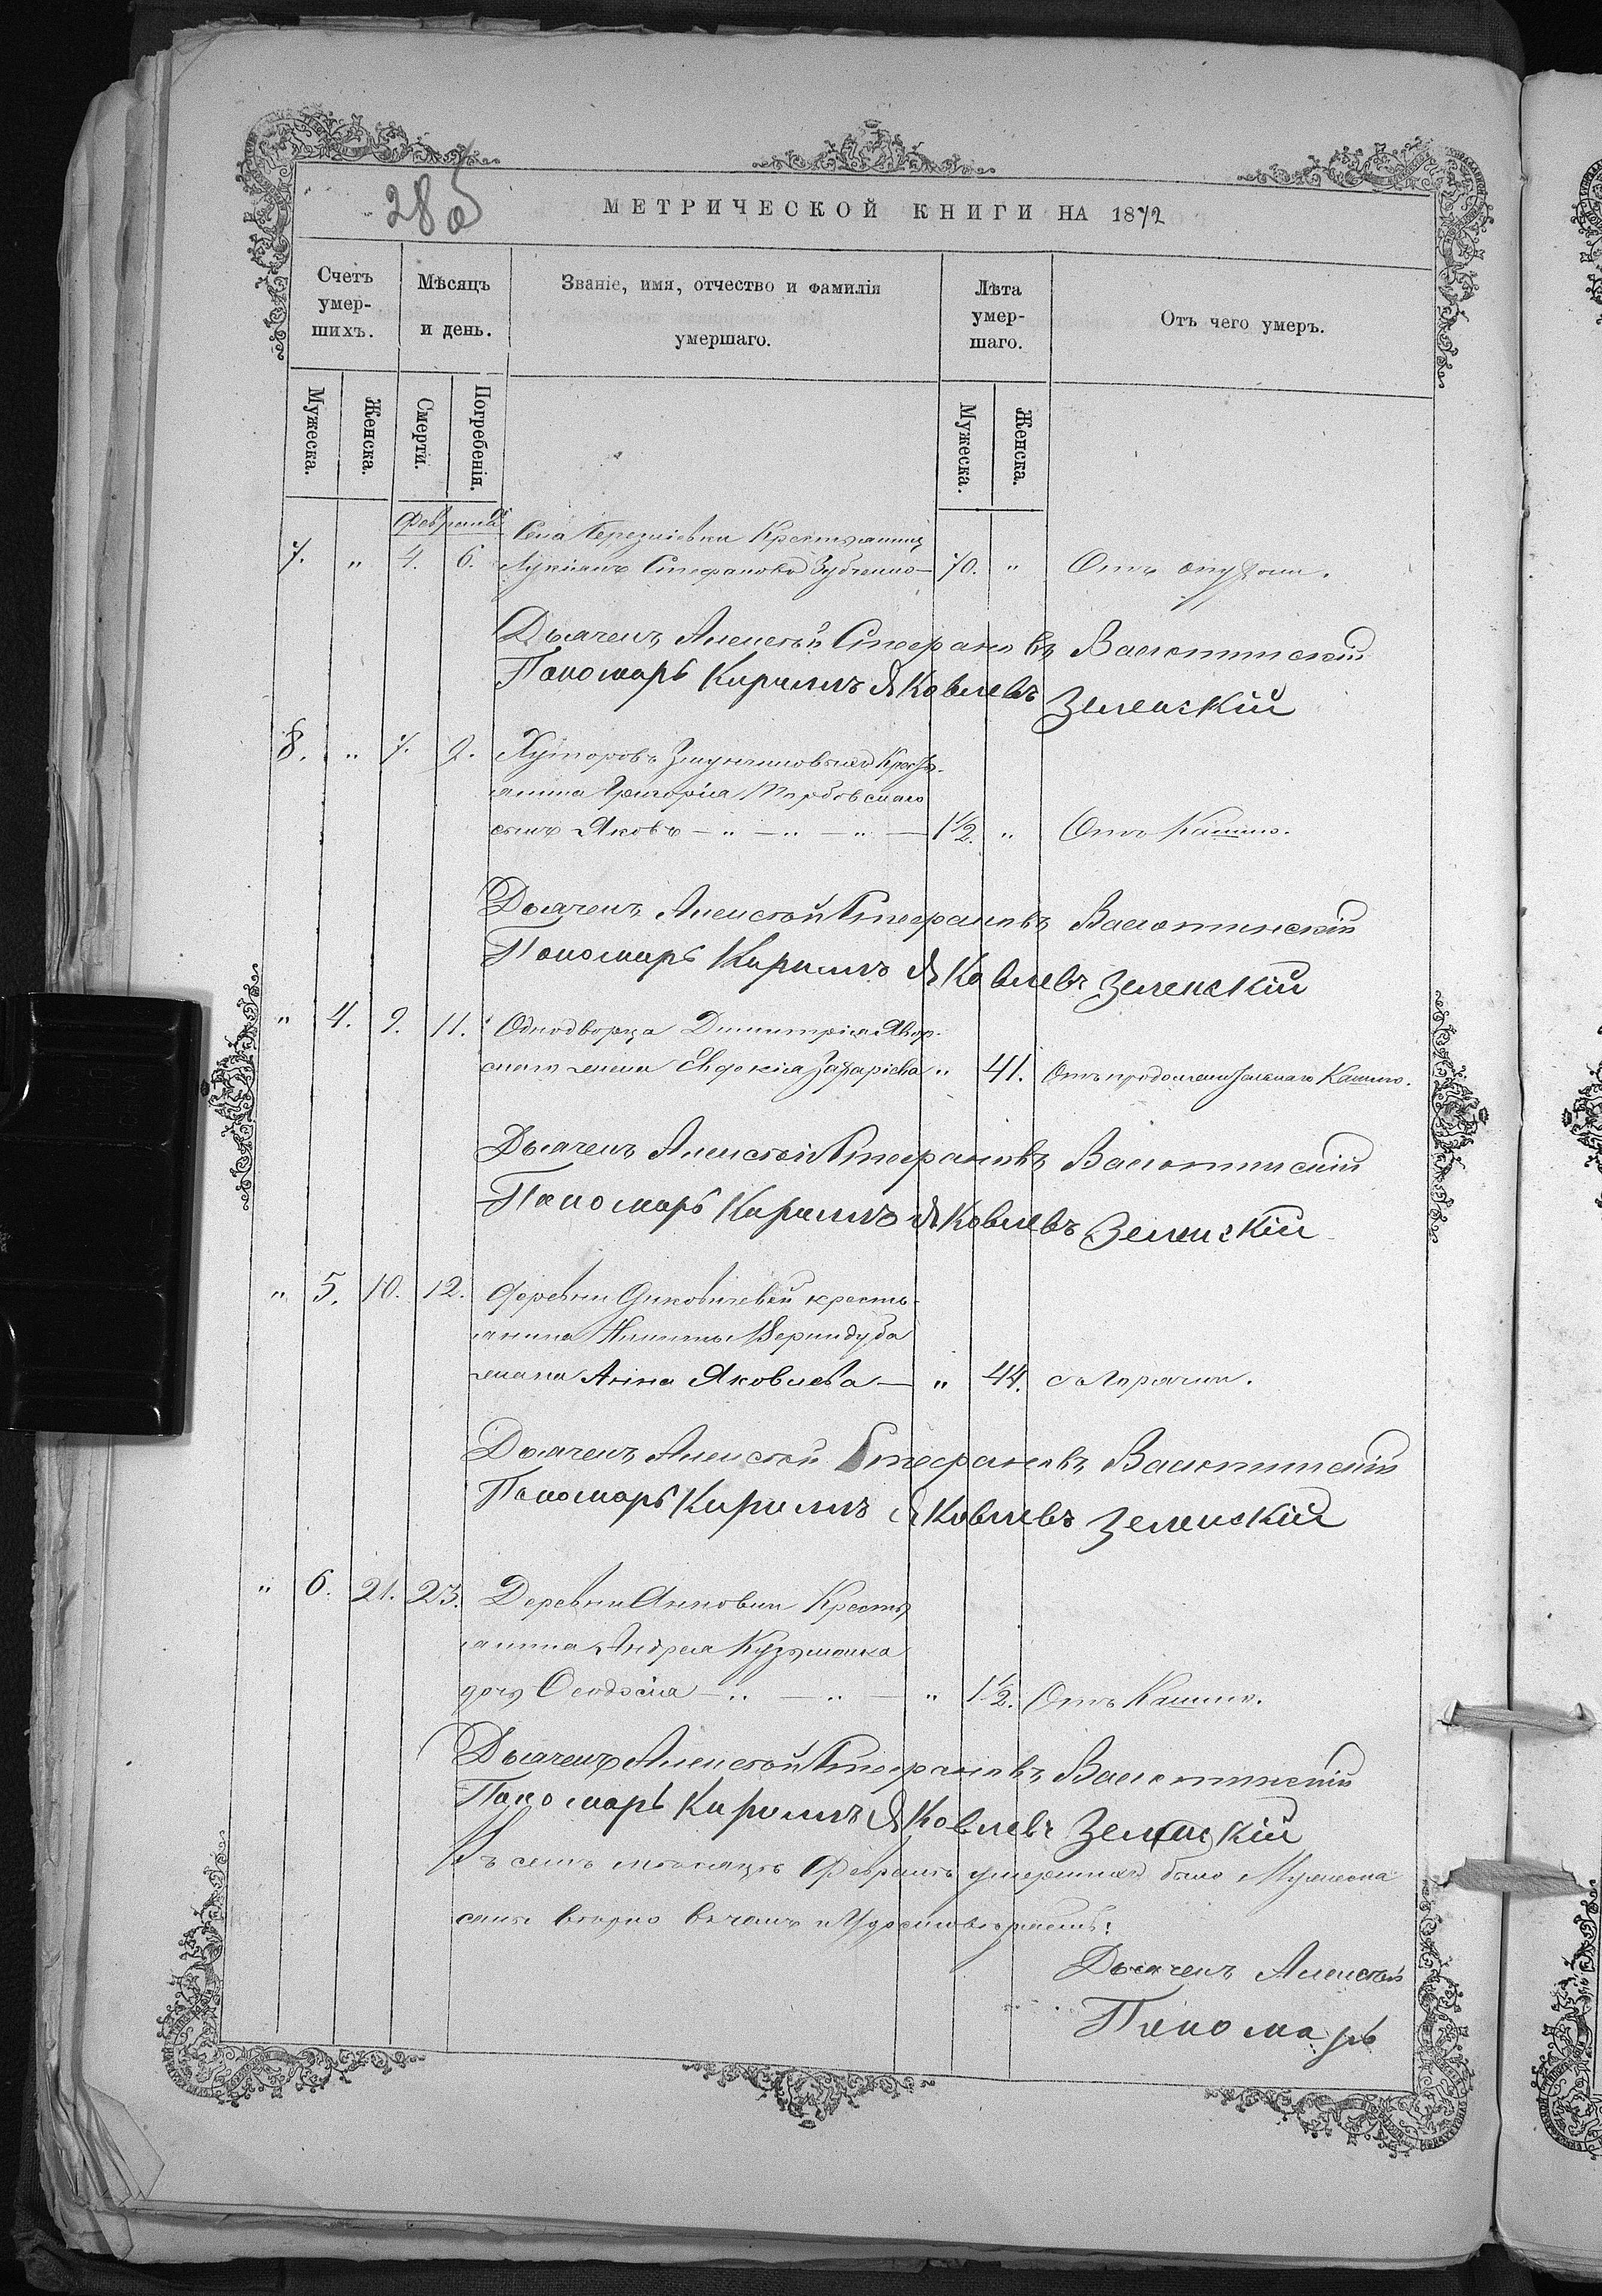 28об
МЕТРИЧЕСКОЙ КНИГИ НА 1872
Счетъ умер-шихъ.
Мѣсяцъ и день.
Званіе, имя, отчество и фамилія умершаго.
Лѣта умер-шаго.
Отъ чего умеръ.
Мужеска.
Женска.
Смерти.
Погребенія.
Мужеска.
Женска.
Февраля
Села Крестьянинъ
7. " 4. 6. Стефановъ Зубченко — 70. " Отъ опухоли.
Дьячекъ Алексѣй Стефановъ Валютинскій
Пономарь Кирилъ Яковлевъ Зеленскій
8. " 7. 9. Хуторовъ Кресть-
янина Григорія
сынъ Яковъ — " — " — " — 1½. " Отъ Кашлю.
Дьячекъ Алексѣй Стефановъ Валютинскій
Пономарь Кирилъ Яковлевъ Зеленскій
" 4. 9. 11. Однодворца Димитрія Явор-
скаго жена Евдокія Захаріева " 41. Отъ продолжительнаго Кашлю.
Дьячекъ Алексѣй Стефановъ Валютинскій
Пономарь Кирилъ Яковлевъ Зеленскій
" 5. 10. 12. Деревни кресть-
янина Никиты Вернидуба
жена Анна Яковлева — " 44. горячки.
Дьячекъ Алексѣй Стефановъ Валютинскій
Пономарь Кирилъ Яковлевъ Зеленскій
" 6. 21. 23. Деревни Янковки Кресть
янина Андрея Кузьменка
дочь Феодосія — " — " — " 1½. Отъ Кашлю.
Дьячекъ Алексѣй Стефановъ Валютинскій
Пономарь Кирилъ Яковлевъ Зеленскій
Въ семъ мѣсяцѣ Февралѣ умершихъ было Мужеска
Дьячекъ Алексѣй
Пономарь